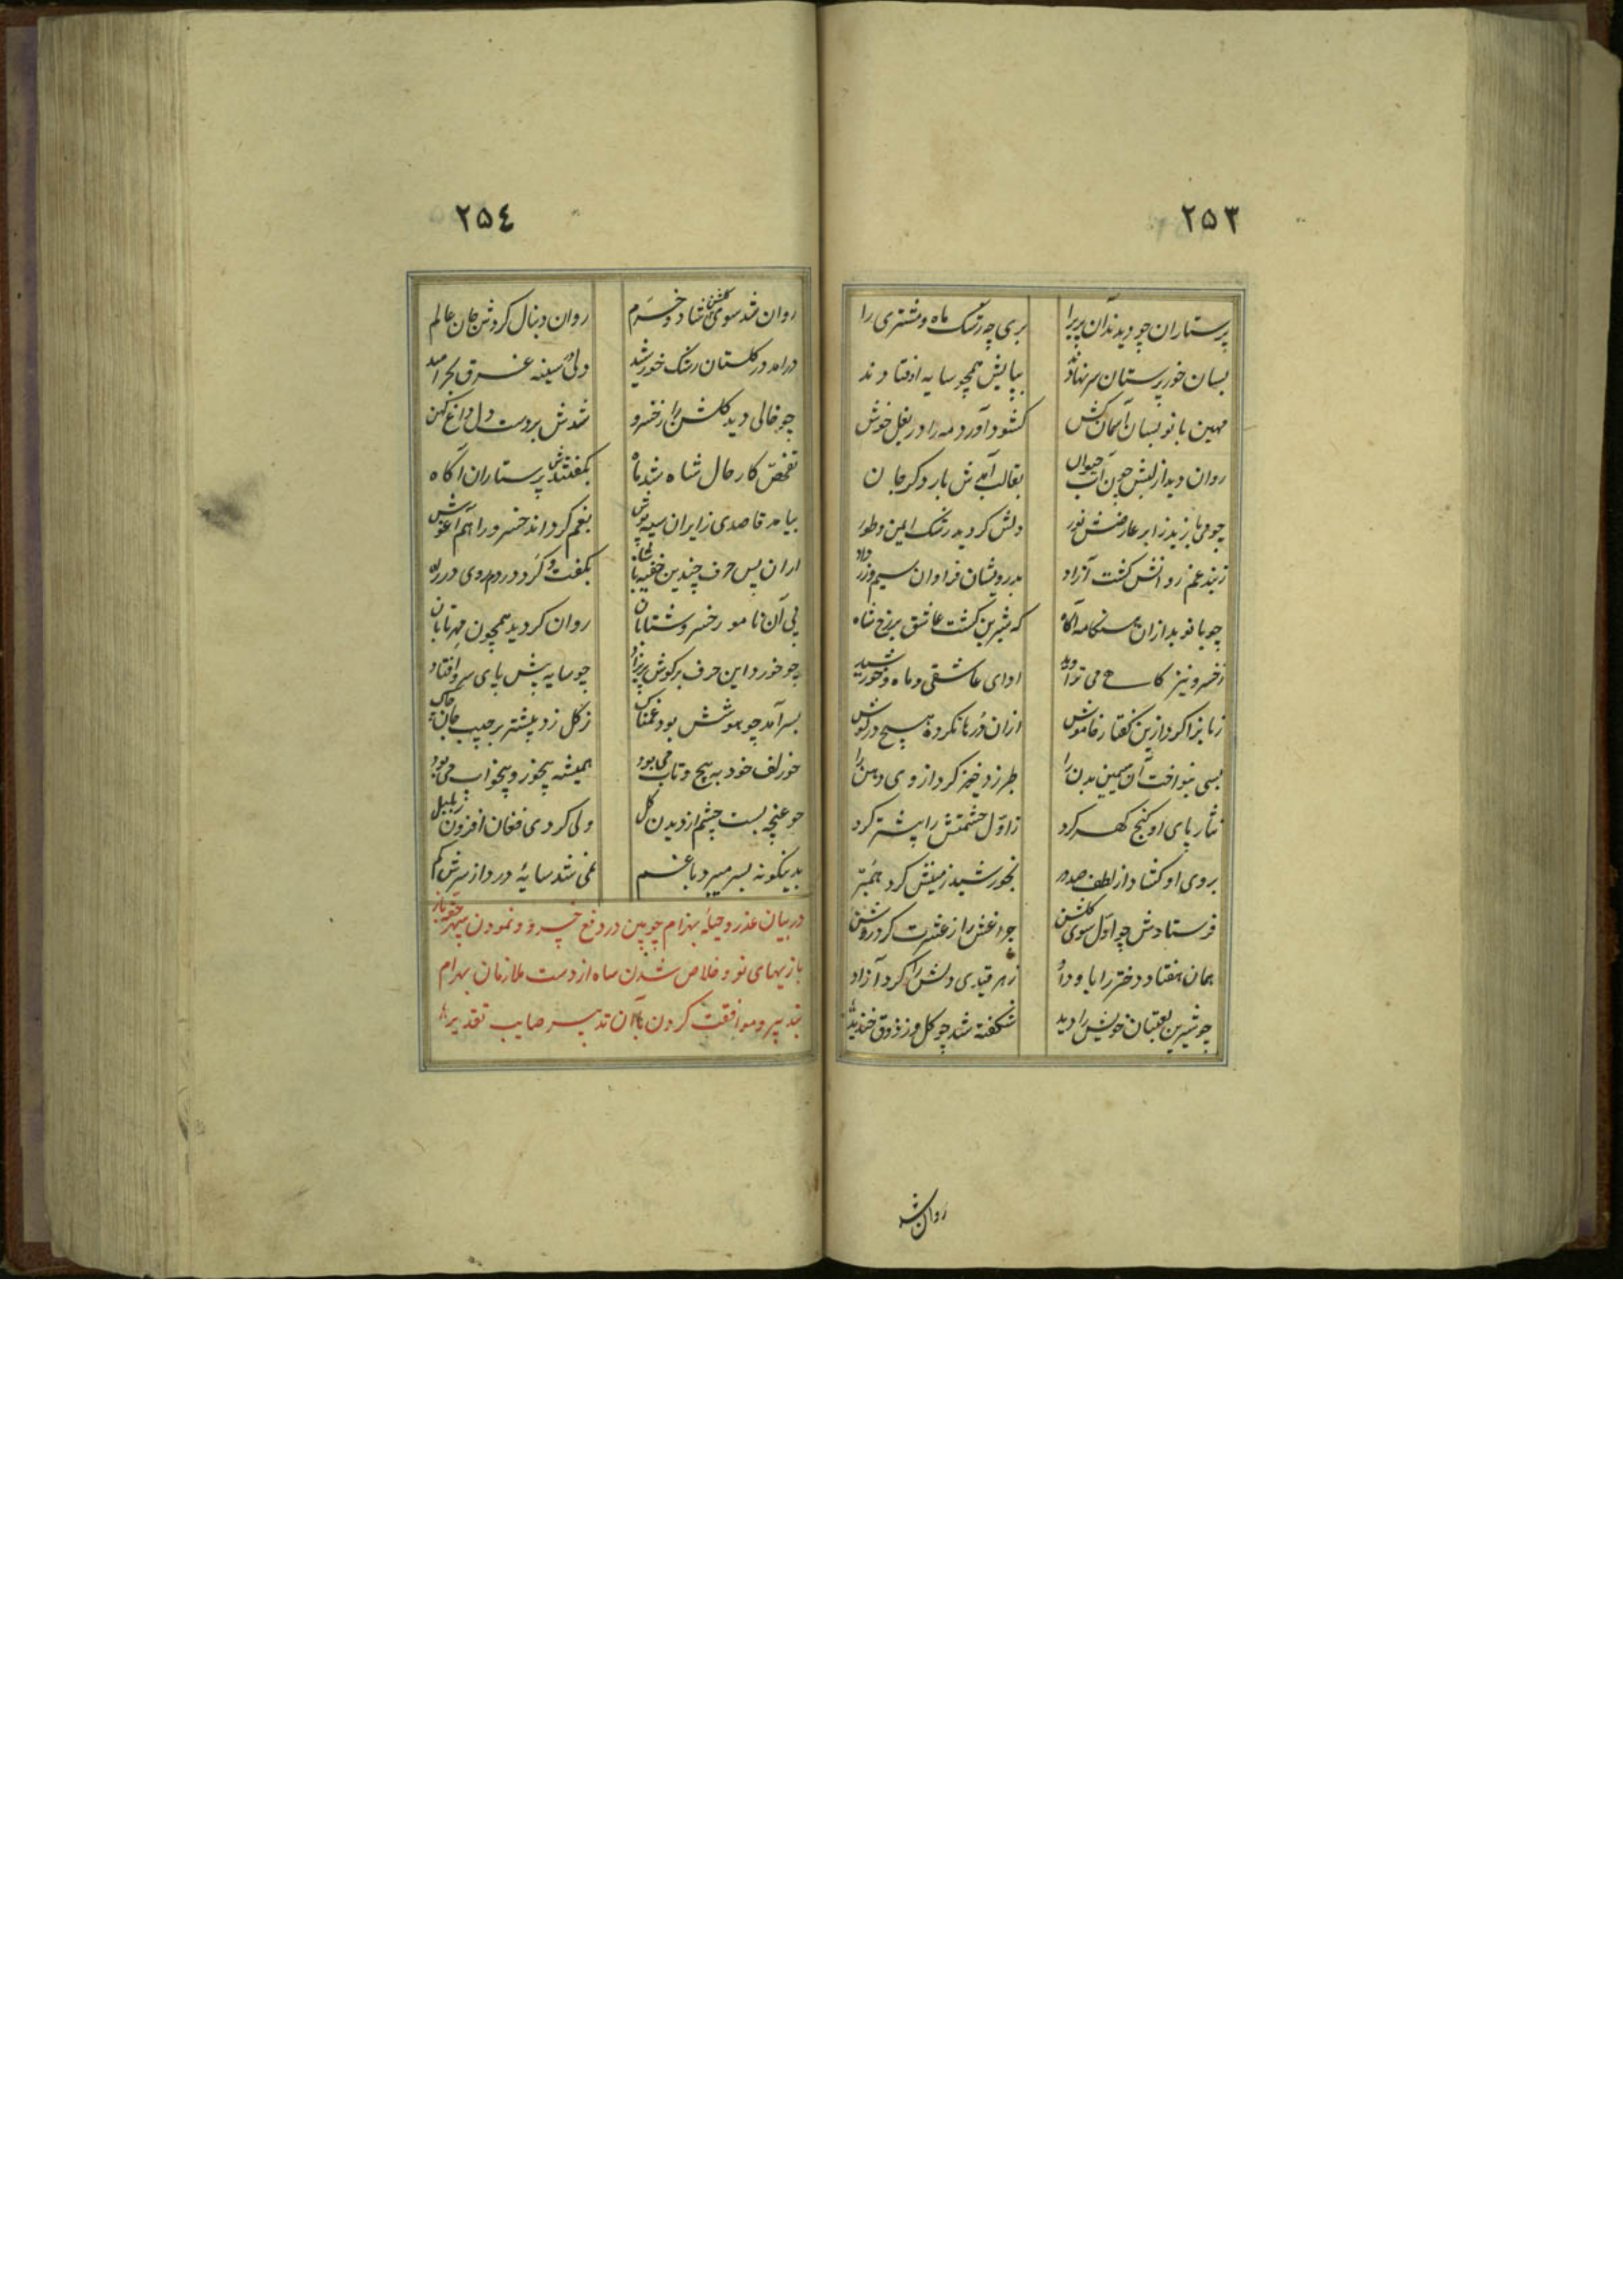 ۲۵۳
پرستاران چو دیدند آن پریرا بری چه رشک ماه و مشتری را
بسان خور پرستان سر نهادند بپایش همچو سایه اوفتادند
مهین بانو بسان آسمان کش کشود آورد مه را در بغل خوش
روان دید از لبش چون آب حیوان بقالب آمدش بار دکر جان
چو می بارید زابر عارضش نور دلش کردید رشک ایمن و طور
ز بند غم روانش کشت آزاد بدرویشان فراوان سیم و زر داد
چو بانو بد ازان هنکامه آکاه که شیرین کشت عاشق بر رخ شاه
ز خسرو نیز کاهی می تراوید ادای عاشقی و ماه و خورشید
زبانرا کرد ازین کفتار خاموش ازان در ها نکرده هیچ در کوش
بسی بنواخت آن سیمین بدن را طبرزد خیز کرد از وی دهن را
نثار پای او کنج کهر کرد ز اول حشمتش را بیشتر کرد
بروی او کشاد از لطف صد در بخورشید زمینش کرد همبر
فرستادش چو اول سوی کلشن چراغش را ز عشرت کرد روشن
همان هفتاد دختر را باو داد ز هر قیدی دلش را کرد آزاد
چو شیرین لعبتان خویش را دید شکفته شد چو کل وز ذوق خندید
روان شد
۲۵٤
روان شد سوی کلشن شاد و خرم روان دنبال کردش جان عالم
درامد در کلستان رشک خورشید ولی در سینه غرق بحر امید
چو خالی دید کلشن را ز خسرو شدش بر دست دل داغ کهن
تفحص کار حال شاه شد ماه بکفتندش پرستاران آکاه
بیامد قاصدی ز ایران سیه پوش بغم کرداند خسرو را هم آغوش
ازان پس حرف چندین خفیه با شاه بکفت و کرد در دم روی در راه
پی آن نامور خسرو شتابان روان کردید همچون مهر تابان
چو خورد این حرف بر کوش پریزاد چو سایه پیش پای سرو افتاد
بسر آمد چو هوشش بود غمناک ز کل زد بیشتر بر جیب جان چاک
چو زلف خود به پیچ و تاب می بود همیشه بیخور و بیخواب می بود
چو غنچه بست چشم از دیدن کل ولی کردی فغان افزون ز بلبل
بدینکونه بسر میبرد با غم نمی شد سایهٔ درد از سرش کم
در بیان غدر و حیلهٔ بهرام چوبین در دفع خسرو و نمودن سپهر حقه باز
بازیهای نو و خلاص شدن شاه از دست ملازمان بهرام
بتدبیر و موافقت کردن با آن تدبیر صایب تقدیر